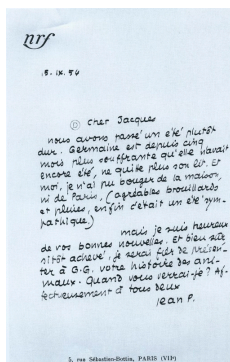 nrf
5. IX. 54
cher Jacques
nous avons passé un été plutôt
dur. Germaine est depuis cinq
mois plus souffrante qu'elle n'avait
encore été, ne quitte plus son lit. Et
moi, je n'ai pu bouger de la maison,
ni de Paris. (agréables brouillards
et pluies, enfin c'était un été sym-
pathique)
mais je suis heureux
de vos bonnes nouvelles. Et bien sûr
sitôt achevé, je serai fier de présen-
ter à G.G. votre histoire des ani-
maux. Quand vous verrai-je? Af-
fectueusement à tous deux
Jean P.
5, rue Sébastien-Bottin, PARIS (VIIe)